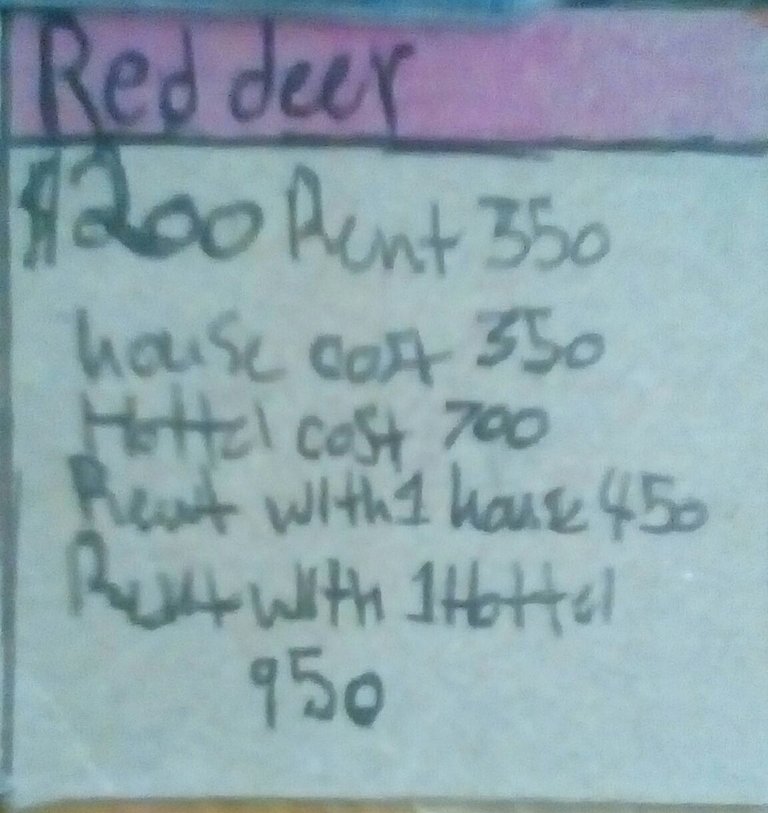 Red deer
$200 Rent 350
house cost 350
Hottel cost 700
Rent with 1 house 450
Rent with 1 Hottel
950